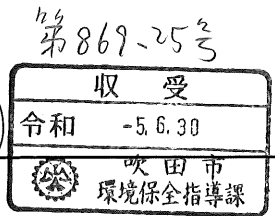 第869-25号
収受
令和 -5.6.30
吹田市
環境保全指導課